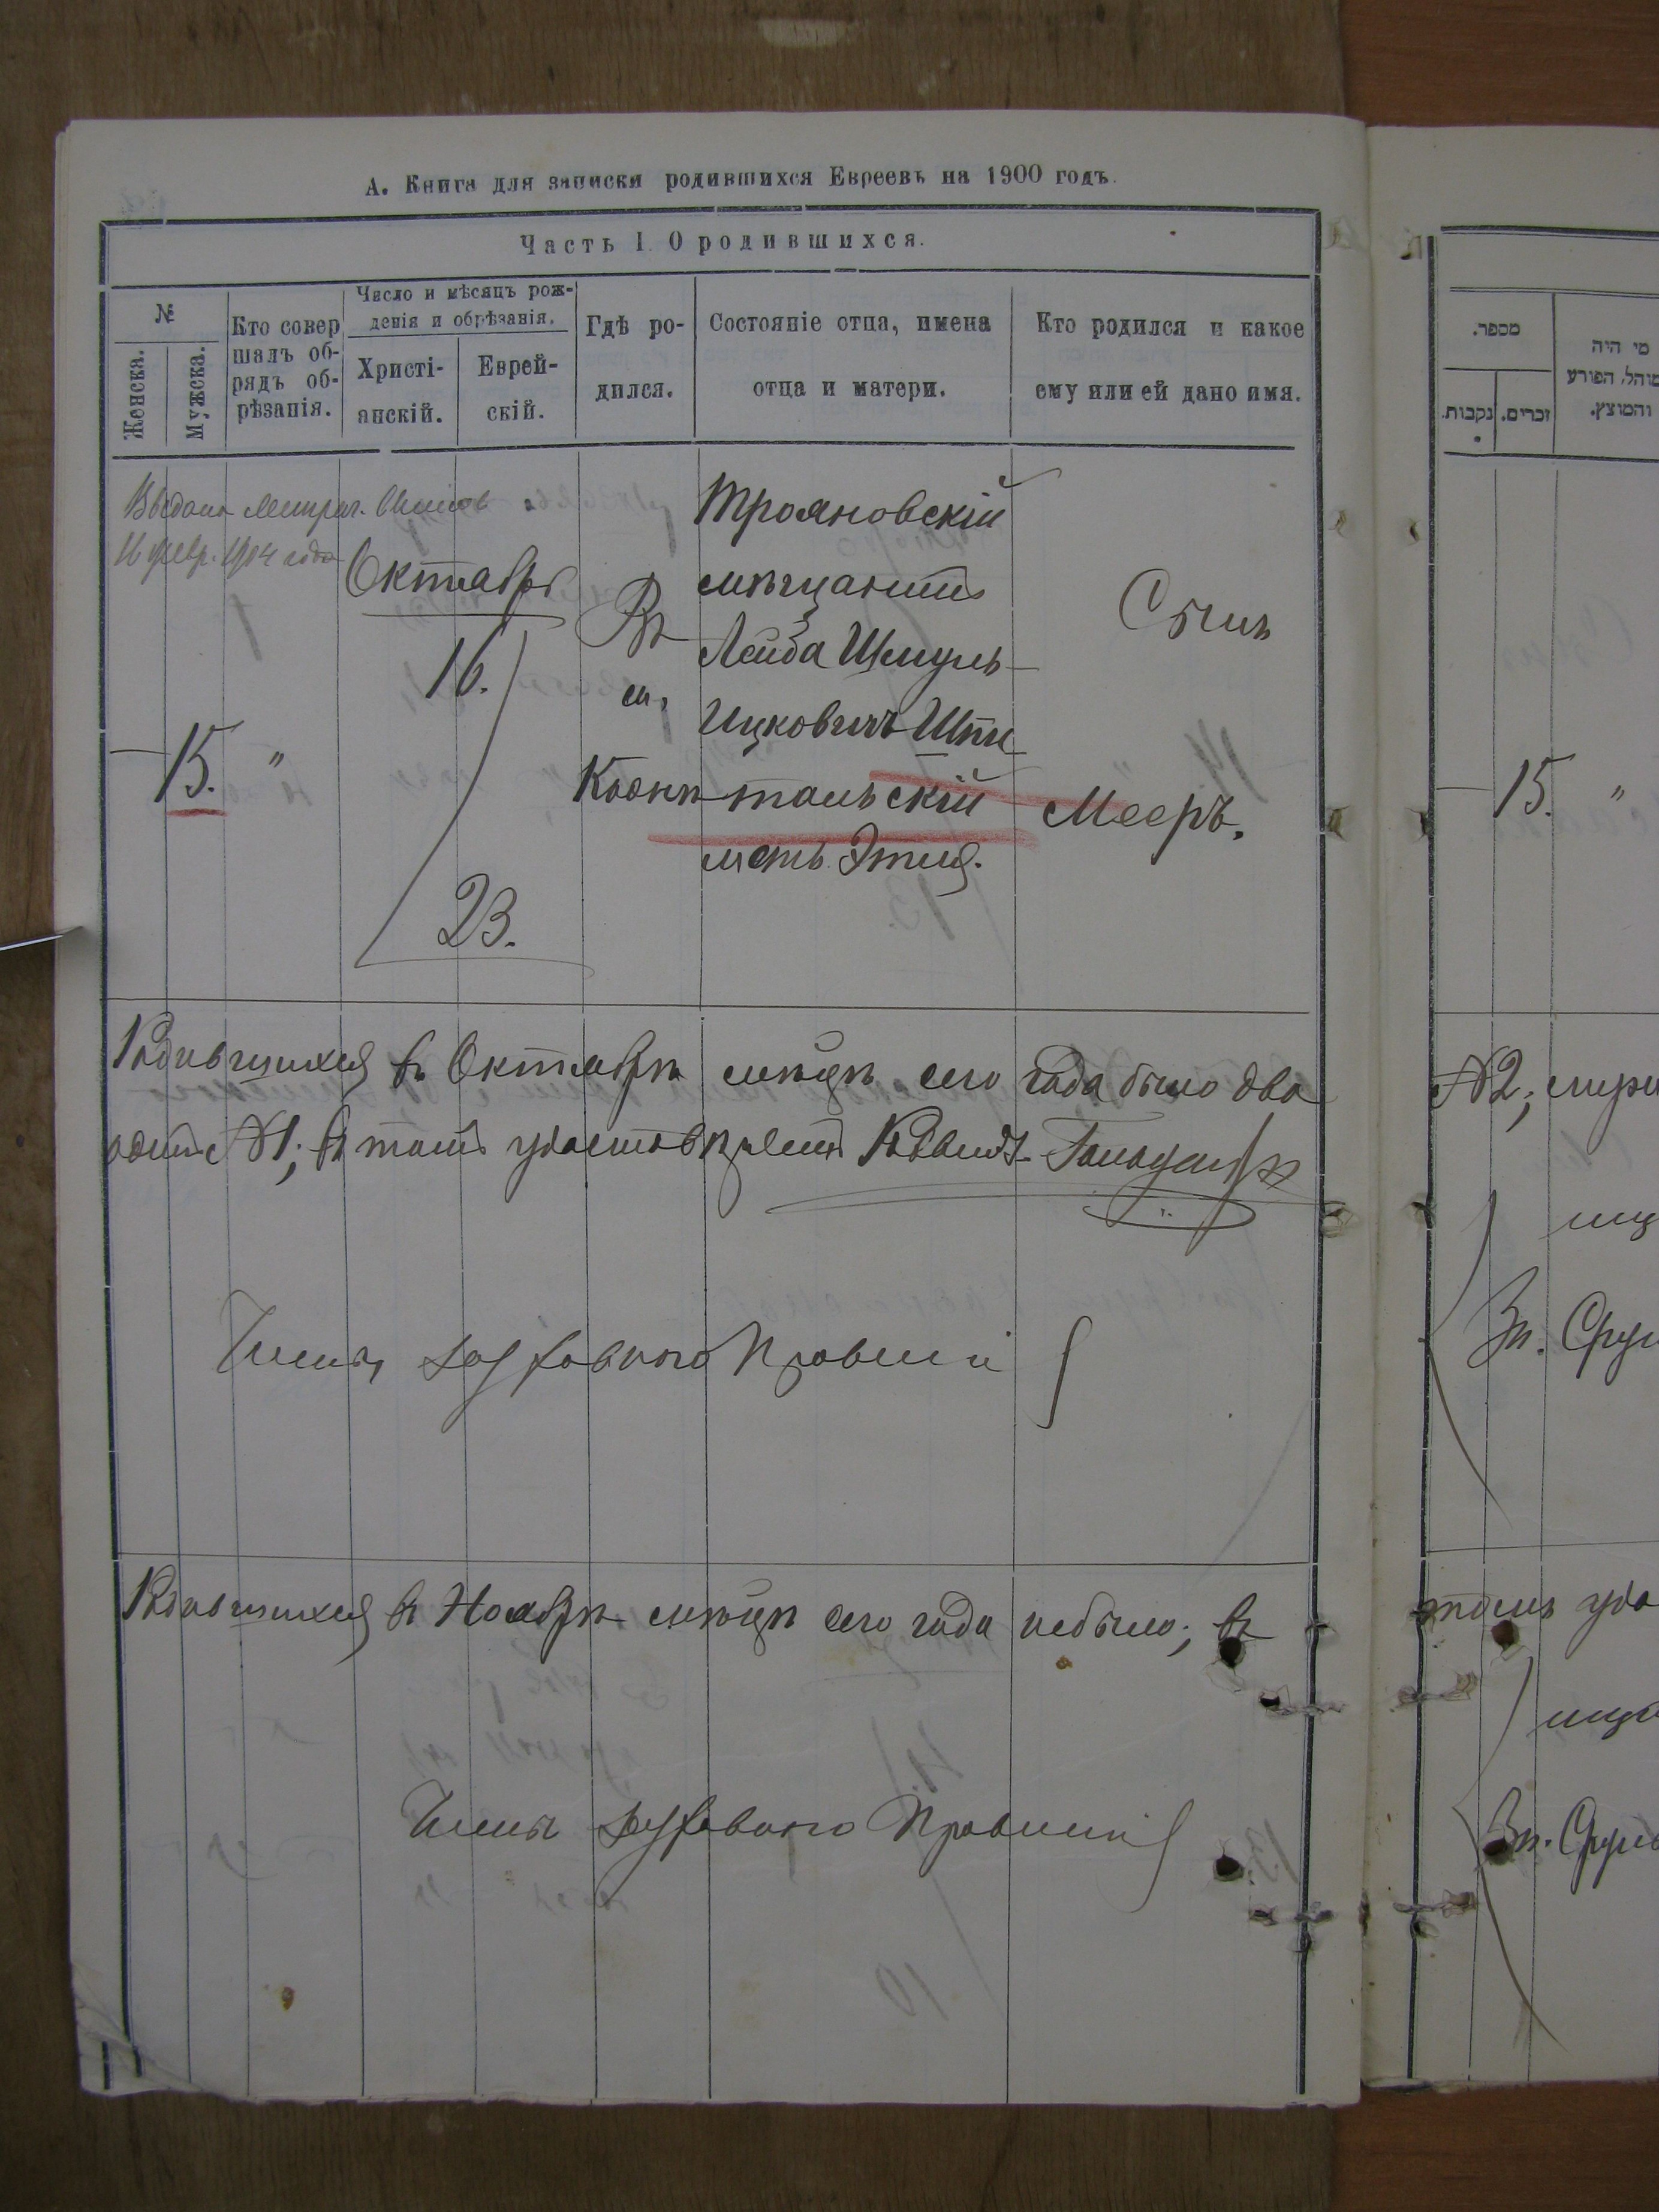 А. Книга для записки родившихся Евреевъ на 1900 годъ.
Часть I. О родившихся.
№
Женска.
Мужска.
Кто совер
шалъ об-
рядъ об-
рѣзанія.
Число и мѣсяцъ рож-
денія и обрѣзанія.
Христі-
анскій.
Еврей-
скій.
Гдѣ ро-
дился.
Состояніе отца, имена
отца и матери.
Кто родился и какое
ему или ей дано имя.
Выдана метрич.
16 февр. 1904 года
15. "
Октябрь
16.
23.
Въ
м.
Трояновскій
мѣщанинъ
Лейба Шмуль-
Ицковичъ Шпи
тальскій
мать Этия.
Сынъ
Мееръ.
Родившихся въ Октябрѣ мѣсцѣ сего года было два
одинъ №1; въ томъ удостовѣряемъ Раввинъ
Члены духовнаго Правленія
Родившихся въ Ноябрѣ мѣсцѣ сего года небыло; въ
Члены духовнаго Правленія
מספר.
נקבות.
זכרים.
מי היה
מוהל, הפורע
והמוצץ.
15. "
№2;
Зп. Срул
томъ удо
Зп. Срул